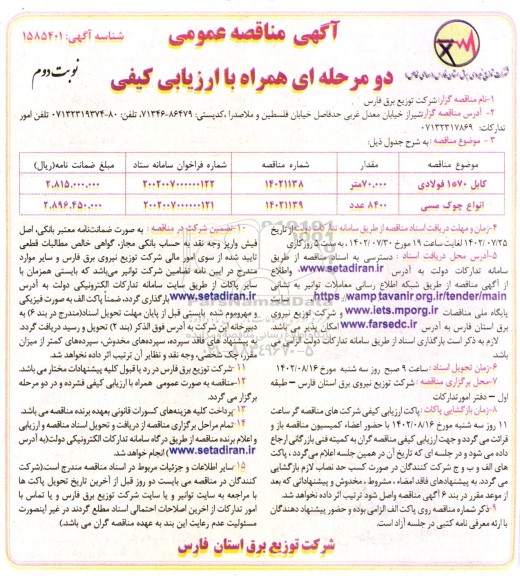 شناسه آگهی: ۱۵۸۵۴۰۱
آگهی مناقصه عمومی
دو مرحله ای همراه با ارزیابی کیفی
نوبت دوم
۱-نام مناقصه گزار:شرکت توزیع برق فارس
۲- آدرس مناقصه گزار:شیراز خیابان معدل غربی حدفاصل خیابان فلسطین و ملاصدرا ،کدپستی: ۸۶۴۷۹-۷۱۳۴۶، تلفن: ۸۰-۰۷۱۳۲۳۱۹۳۷۴ تلفن امور
تدارکات: ۰۷۱۳۲۳۱۷۸۶۹
۳- موضوع مناقصه :به شرح جدول ذیل:
موضوع مناقصه | مقدار | شماره مناقصه | شماره فراخوان سامانه ستاد | مبلغ ضمانت نامه(ریال)
کابل ۷۰*۱ فولادی | ۷۰.۰۰۰متر | ۱۴۰۲۱۱۳۸ | ۲۰۰۲۰۰۷۰۰۰۰۰۰۱۲۲ | ۲.۸۱۵.۰۰۰.۰۰۰
انواع چوک مسی | ۸۴۰۰ عدد | ۱۴۰۲۱۱۳۹ | ۲۰۰۲۰۰۷۰۰۰۰۰۰۱۲۱ | ۲.۸۹۶.۴۵۰.۰۰۰
۴-زمان و مهلت دریافت اسناد مناقصه از طریق سامانه تدارکات دولت:از تاریخ
۱۴۰۲/۰۷/۲۵ لغایت ساعت ۱۹ مورخ ۱۴۰۲/۰۷/۳۰ ، به مدت ۵ روز کاری
۵-آدرس محل دریافت اسناد : دسترسی به اسناد مناقصه از طریق
سامانه تدارکات دولت به آدرس www.setadiran.ir واطلاع
از آگهی مناقصه از طریق شبکه اطلاع رسانی معاملات توانیر به نشانی
https://wamp.tavanir.org.ir/tender/main سایت
پایگاه ملی مناقصات www.iets.mporg.ir و شرکت توزیع نیروی
برق استان فارس به آدرس www.farsedc.ir امکان پذیر می باشد.
لازم به ذکر است بارگذاری اسناد از طریق سامانه تدارکات دولت الزامی می
باشد
۶-زمان تحویل اسناد :ساعت ۹ صبح روز سه شنبه مورخ ۱۴۰۲/۰۸/۱۶
۷-محل برگزاری مناقصه : شرکت توزیع نیروی برق استان فارس – طبقه
اول – دفتر امور تدارکات
۸-زمان بازگشایی پاکات : پاکت ارزیابی کیفی شرکت های مناقصه گر ساعت
۱۱ روز سه شنبه مورخ ۱۴۰۲/۰۸/۱۶ با حضور اعضاء کمیسیون مناقصه باز و
قرائت می گردد و جهت ارزیابی کیفی مناقصه گران به کمیته فنی بازرگانی ارجاع
داده می شود و در جلسه ای که تاریخ آن در همین جلسه اعلام می گردد ، پاکت
های الف و ب و ج شرکت کنندگان در صورت کسب حد نصاب لازم بازگشایی
می گردد. به پیشنهادهای فاقد امضاء ، مشروط ، مخدوش و پیشنهاداتی که بعد
از موعد مقرر در بند ۶ آگهی مناقصه واصل شود ترتیب اثر داده نخواهد شد.
۹-ذکر شماره مناقصه روی پاکت الف الزامی بوده و حضور پیشنهاد دهندگان
با ارئه معرفی نامه کتبی در جلسه آزاد است.
۱۰-تضمین شرکت در مناقصه : به صورت ضمانت‌نامه معتبر بانکی، اصل
فیش واریز وجه نقد به حساب بانکی مجاز، گواهی خالص مطالبات قطعی
تایید شده از سوی امور مالی شرکت توزیع نیروی برق فارس و سایر موارد
مندرج در آیین نامه تضامین شرکت توانیر می‌باشد که بایستی همزمان با
سایر پاکات از طریق سایت سامانه تدارکات الکترونیکی دولت به آدرس
www.setadiran.ir بارگذاری گردد، ضمناً پاکت الف به صورت فیزیکی
و مهروموم شده بایستی قبل از پایان مهلت تحویل اسناد(مندرج در بند ۶) به
دبیرخانه این شرکت به آدرس فوق الذکر (بند ۲) تحویل و رسید دریافت گردد.
به پیشنهاد های فاقد سپرده، سپرده‌های مخدوش، سپرده‌های کمتر از میزان
مقرر، چک شخصی، وجه نقد و نظایر آن ترتیب اثر داده نخواهد شد.
۱۱-شرکت توزیع برق فارس در رد یا قبول کلیه پیشنهادات مختار می باشد.
۱۲-مناقصه به صورت عمومی همراه با ارزیابی کیفی فشرده و در دو مرحله
برگزار می گردد.
۱۳-پرداخت کلیه هزینه‌های کسورات قانونی بعهده برنده مناقصه می باشد.
۱۴-تمام مراحل برگزاری مناقصه از دریافت و تحویل اسناد مناقصه و ارزیابی
و اعلام برنده مناقصه از طریق درگاه سامانه تدارکات الکترونیکی دولت(به آدرس
www.setadiran.ir) انجام خواهد شد.
۱۵-سایر اطلاعات و جزئیات مربوط در اسناد مناقصه مندرج است(شرکت
کنندگان در مناقصه می بایست دو روز قبل از آخرین تاریخ تحویل پاکت ها
با مراجعه به سایت توانیر و یا سایت شرکت توزیع برق فارس و یا تماس با
امور تدارکات از اخرین اصلاحات احتمالی اسناد مطلع گردند در غیر اینصورت
مسئولیت عدم رعایت این بند به عهده مناقصه گران می باشد.)
شرکت توزیع برق استان فارس